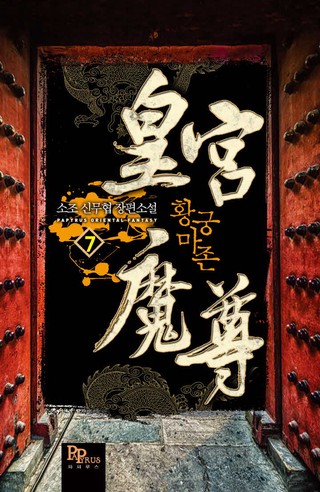 皇宮
魔尊
황궁
마존
소조 신무협 장편소설
PAPYRUS ORIENTAL FANTASY
7
PAPYRUS
파피루스